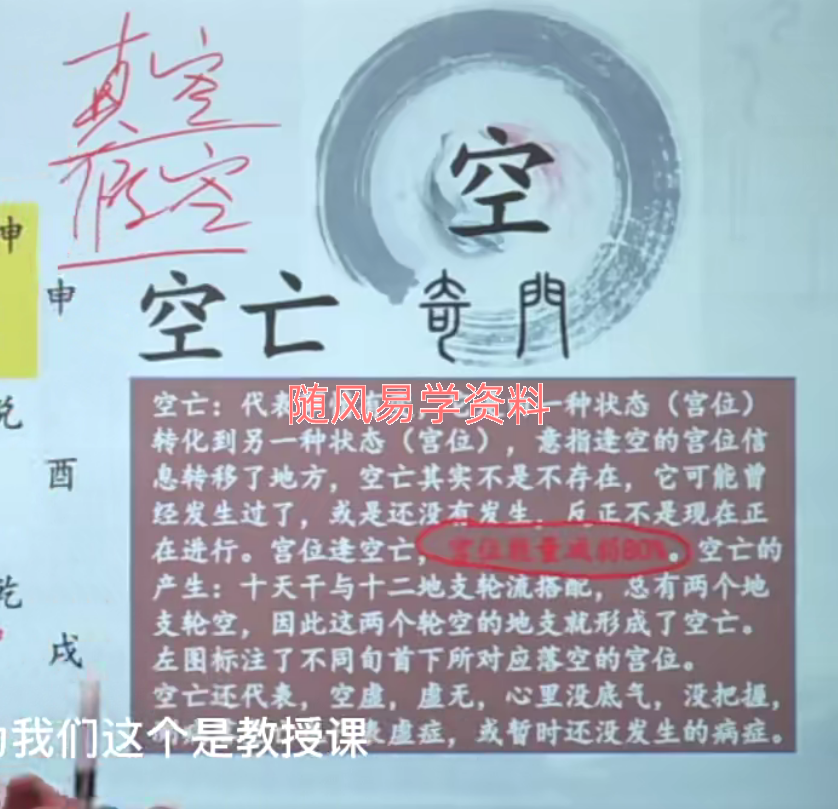 真空
假空
空
申
申
空亡 奇門
随风易学资料
空亡：代表 一种状态（宫位）
兑
转化到另一种状态（宫位），意指逢空的宫位信
酉
息转移了地方，空亡其实不是不存在，它可能曾
经发生过了，或是还没有发生，反正不是现在正
在进行。宫位逢空亡，宫位能量减弱80%。空亡的
乾
产生：十天干与十二地支轮流搭配，总有两个地
支轮空，因此这两个轮空的地支就形成了空亡。
戌
左图标注了不同旬首下所对应落空的宫位。
空亡还代表，空虚，虚无，心里没底气，没把握，
虚症，或暂时还没发生的病症。
我们这个是教授课